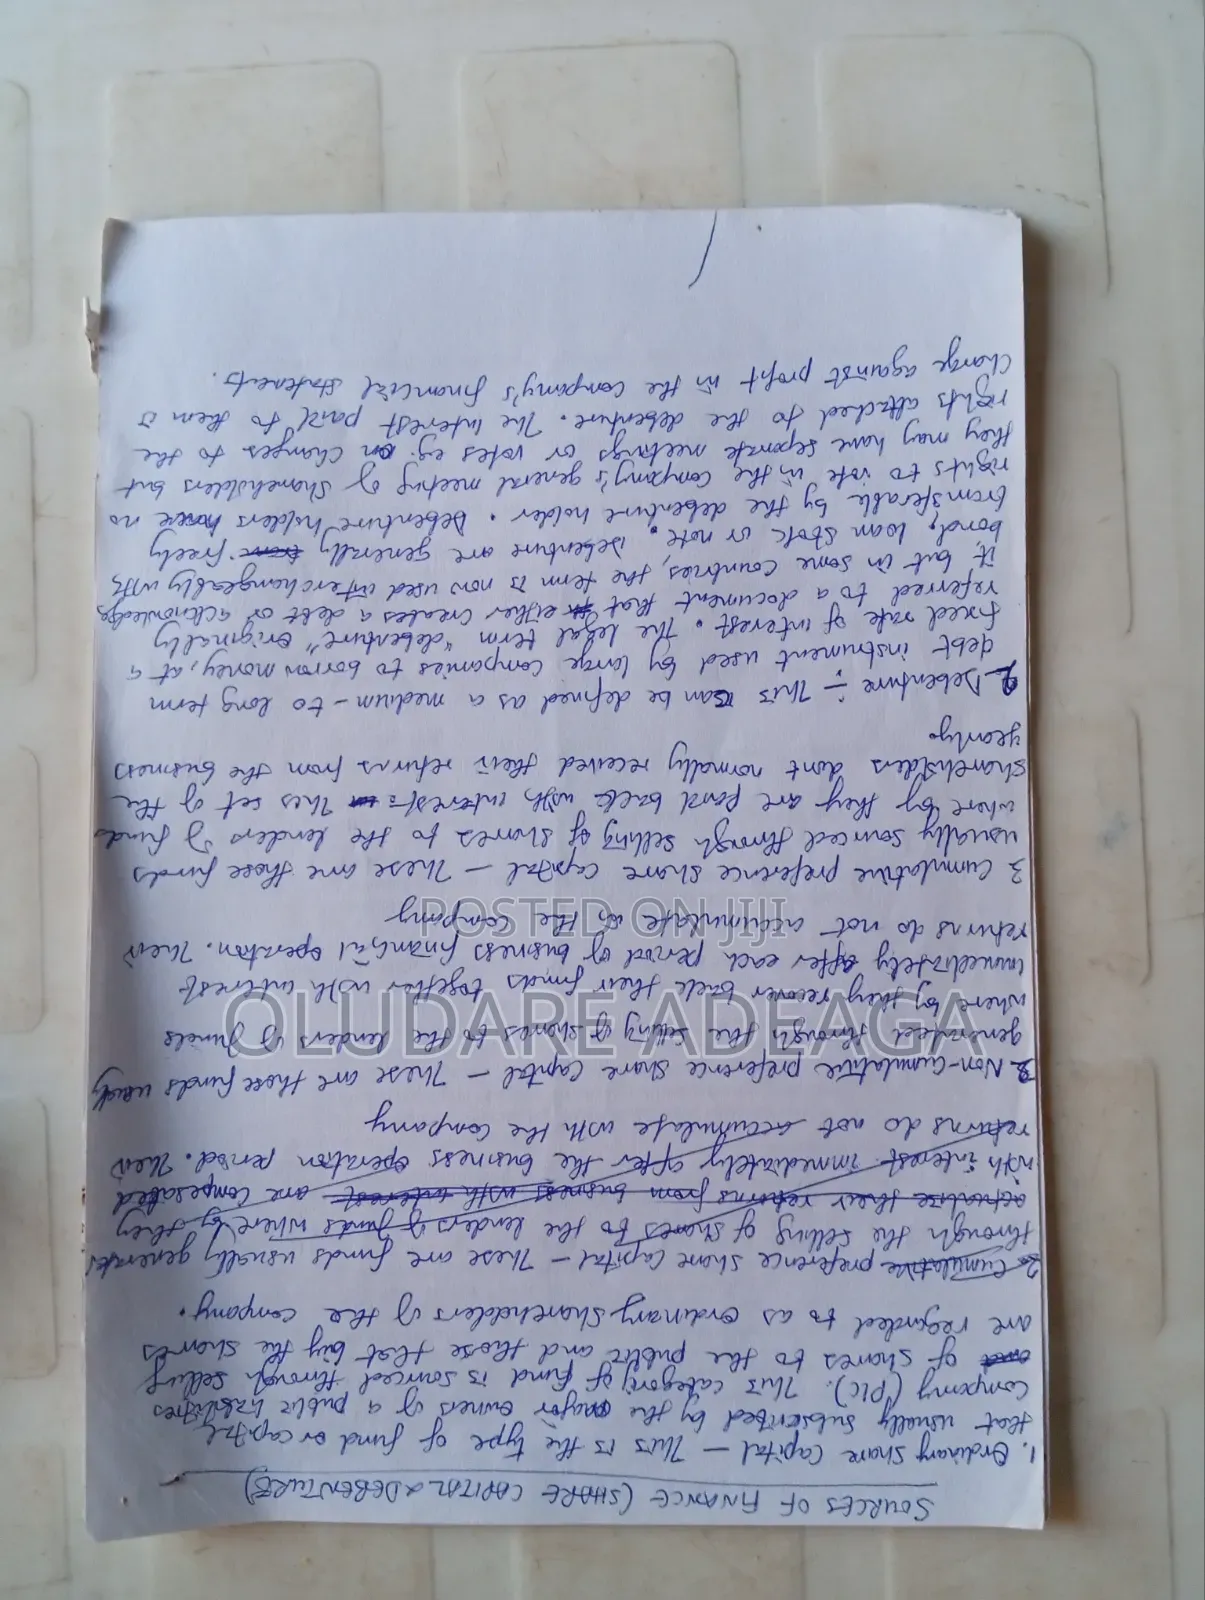 SOURCES OF FINANCE (SHARE CAPITAL & DEBENTURE)
1. Ordinary share capital — This is the type of fund or capital
that usually subscribed by the major owners of a public liabilities
Company (PLC). This category of fund is sourced through selling
of shares to the public and those that buy the shares
are regarded to as ordinary shareholders of the company.
2. Cumulative preference share capital — These are funds usually generates
through the selling of shares to the lenders of funds where by they
actualise their returns from business with interest are compesated
with interest immediately after the business operation period. Their
returns do not accumulate with the company
2. Non-Cumulative preference share capital — These are those funds usually
generated through the selling of shares to the lenders of funds
where by they recover back their funds together with interest
immediately after each period of business financial operation. Their
returns do not accumulate in the company
3. Cumulative preference share capital — These are those funds
usually sourced through selling of shares to the lenders of funds
where by they are paid back with interest. This set of the
shareholders dont normally received their returns from the business
yearly.
Debenture :- This can be defined as a medium - to long term
debt instrument used by large companies to borrow money, at a
fixed rate of interest. The legal term "debenture" originally
referred to a document that either creates a debt or acknowledge
it, but in some countries, the term is now used interchangeably with
bond, loan stock or note. Debenture are generally freely
transferable by the debenture holder. Debenture holders have no
rights to vote in the company's general meeting of shareholders but
they may have separate meetings or votes eg. on changes to the
rights attached to the debenture. The interest paid to them is
charge against profit in the company's financial statements.
POSTED ON JIJI
OLUDARE ADEAGA